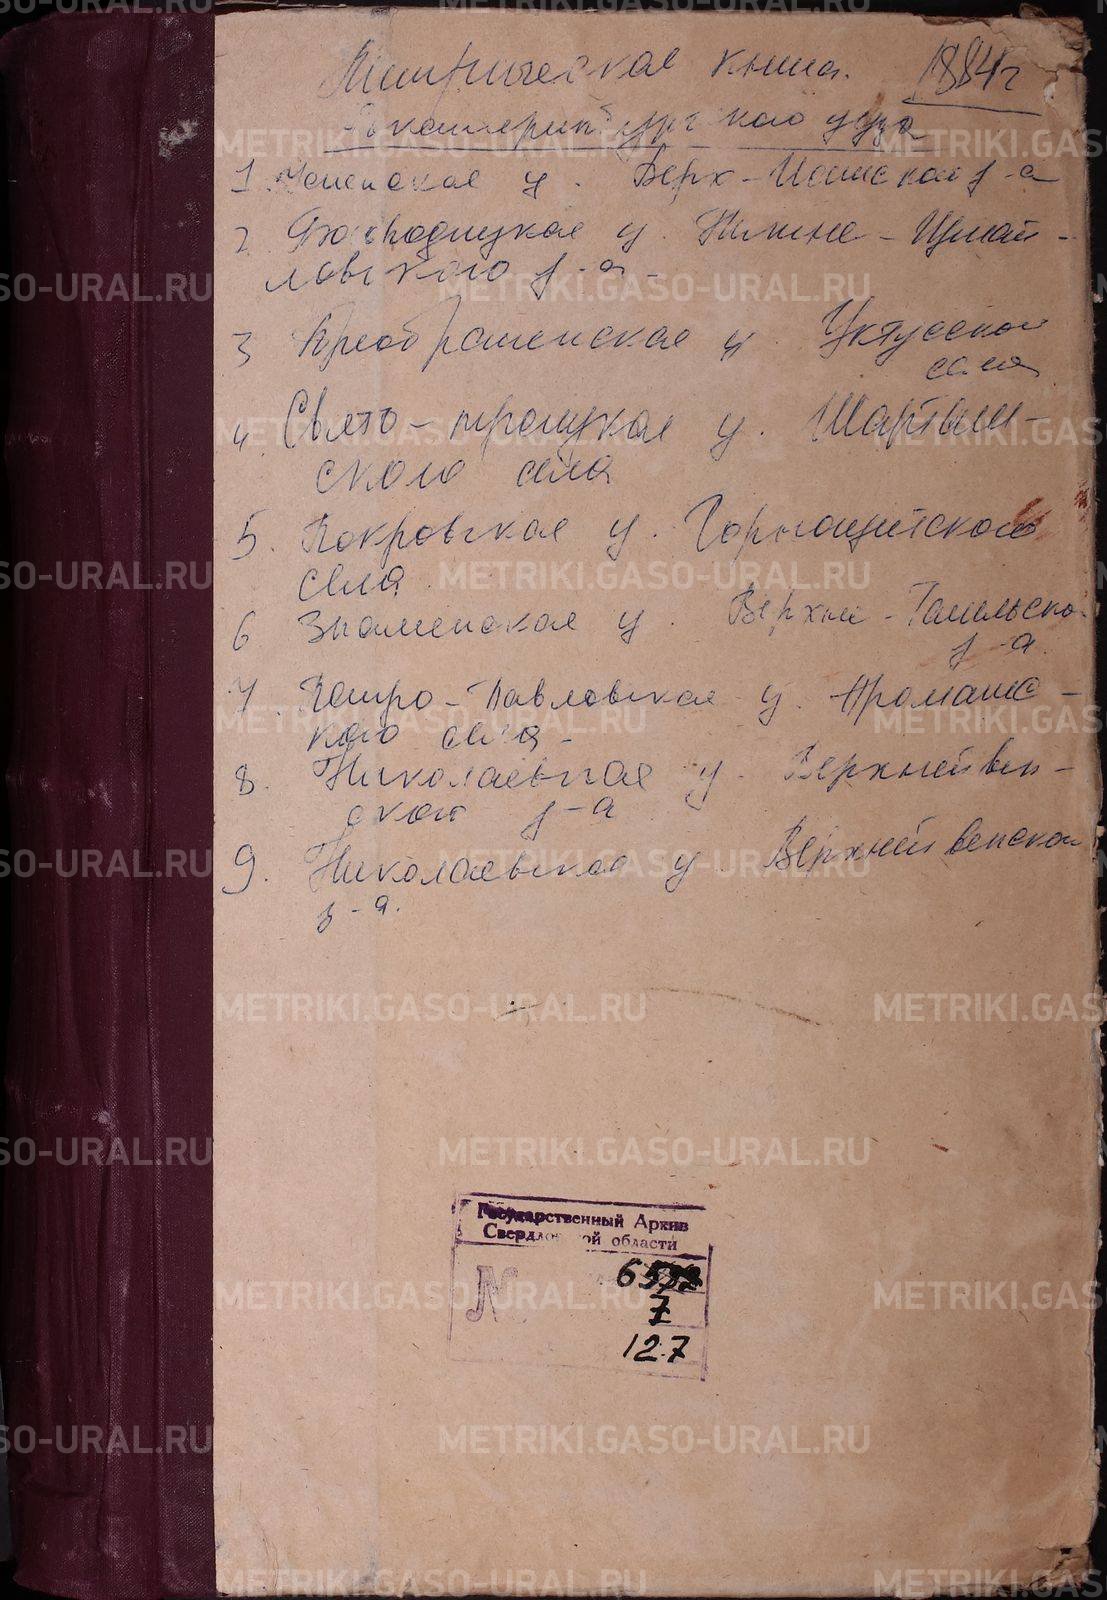 Метрическая книга. 1884г
Екатеринбургского уезда
1. Успенская ц. Верх-Исетского з-а
2 Богородицкая ц. Нижне-Исетского з-а
3 Преображенская ц. Уктусского
села
4. Свято-троицкая ц. Шарташ-
ского села
5. Покровская ц. Горнощитского
села
6 Знаменская ц. Верхне-Тагильско
з-а.
7. Петро-Павловская ц. Аромашс-
кого села-
8. Николаевская ц. Верхнейвин-
ского з-а
9. Николаевская ц. Верхнейвинского
з-а.
Государственный Архив
Свердловской области
№ 6532
7
127
METRIKI.GASO-URAL.RU